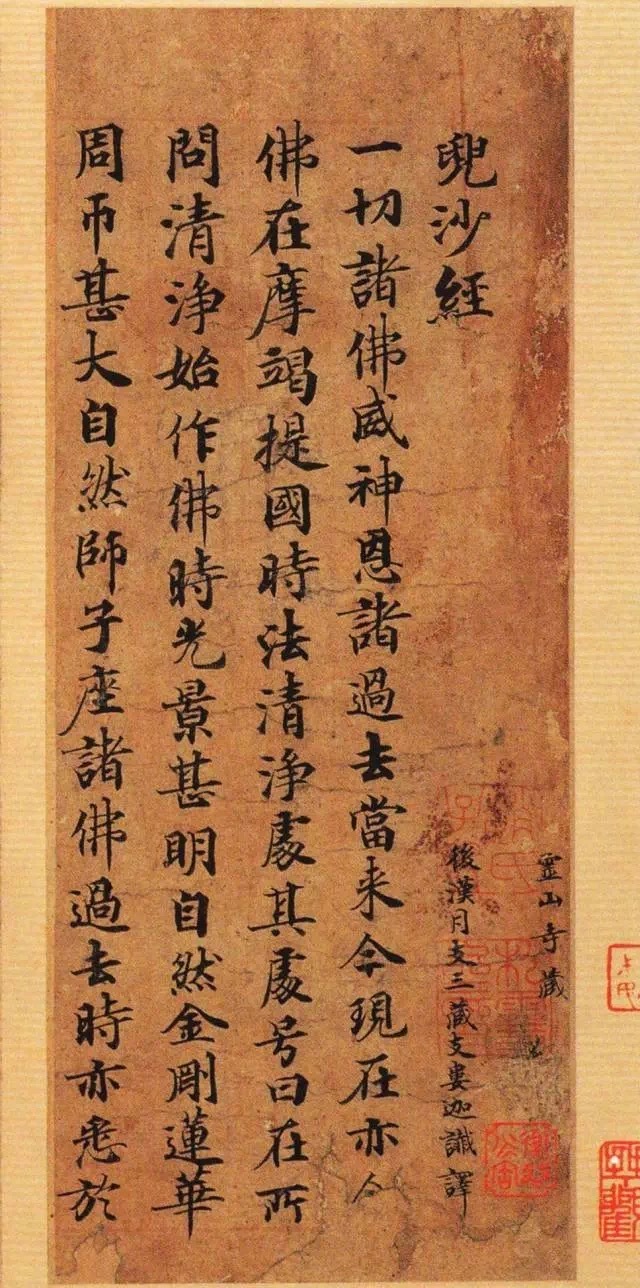 霊山寺藏
兜沙經 後漢月支三藏支婁迦讖譯
一切諸佛威神恩諸過去當来今現在亦尒
佛在摩竭提國時法清浄處其處号曰在所
問清浄始作佛時光景甚明自然金剛蓮華
周帀甚大自然師子座諸佛過去時亦悉於